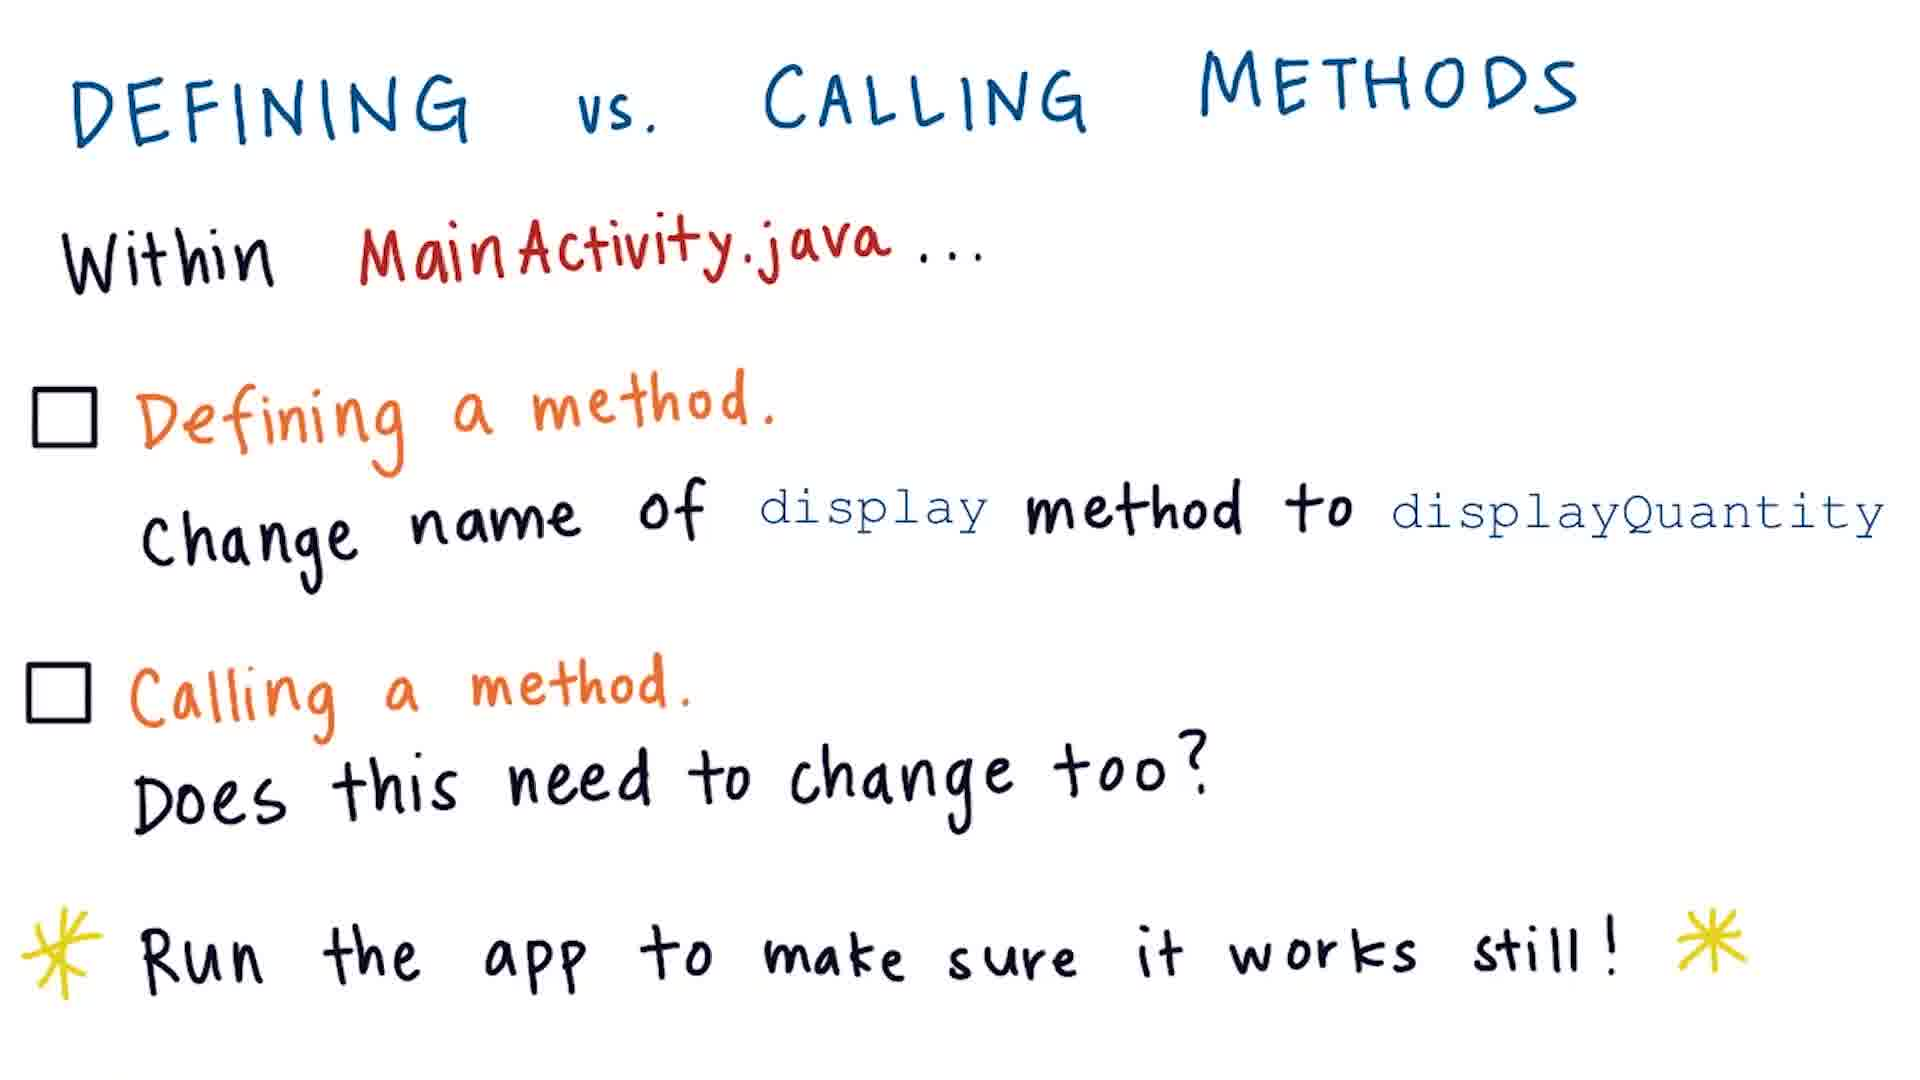 DEFINING vs. CALLING METHODS
Within MainActivity.java ...
Defining a method.
Change name of display method to displayQuantity
Calling a method.
Does this need to change too?
Run the app to make sure it works still!